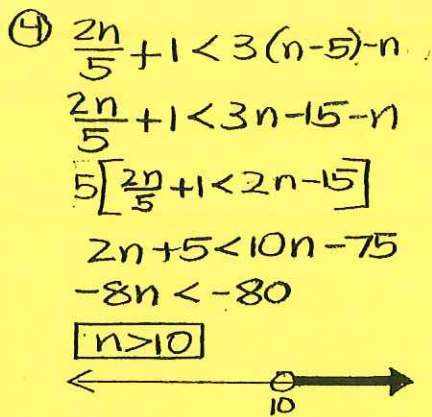 ④ 2n/5 + 1 < 3(n-5)-n
2n/5 + 1 < 3n-15-n
5[2n/5 + 1 < 2n-15]
2n+5 < 10n-75
-8n < -80
n>10
10